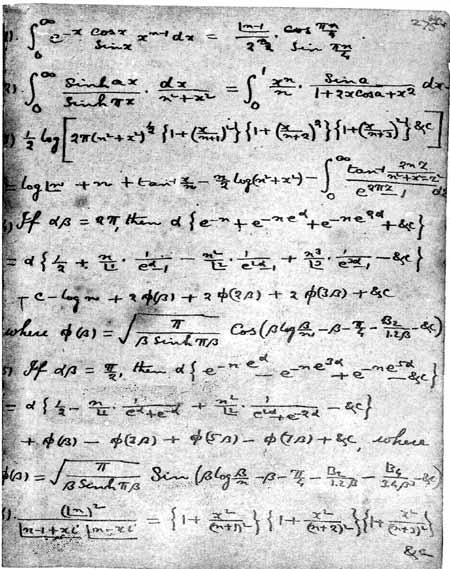 1). ∫₀^∞ e^{-x} cos x / sin x x^{n-1} dx = |n-1 / 2^{n/2} · cos πn/4 / sin πn/4.
2) ∫₀^∞ Sinh ax / Sinh πx · dx / n²+x² = ∫₀^1 x^n/n · Sin a / 1+2x cos a+x² dx
3) ½ log [2π(n²+x²)^{½} {1+(x/n+1)²}{1+(x/n+2)²}{1+(x/n+3)²} &c]
= log |n + n + x tan⁻¹ x/n − n/2 log(n²+x²) − ∫₀^∞ tan⁻¹ 2nz/n²+x²−z² / e^{2πz}−1 dz
4) If αβ = 2π, then α {e^{-n} + e^{-ne^α} + e^{-ne^{2α}} + &c}
= α {½ + n/|1 · 1/e^α−1 − n²/|2 · 1/e^{2α}−1 + n³/|3 · 1/e^{3α}−1 − &c}
− C − log n + 2φ(β) + 2φ(2β) + 2φ(3β) + &c
where φ(β) = √(π / β Sinh πβ) Cos (β log β/n − β − π/4 − B₂/1.2β − &c)
5) If αβ = π/2, then α {e^{-ne^α} − e^{-ne^{3α}} + e^{-ne^{5α}} − &c}
= α {½ − n/|1 · 1/e^α+e^{-α} + n²/|2 · 1/e^{2α}+e^{-2α} − &c}
+ φ(β) − φ(3β) + φ(5β) − φ(7β) + &c, where
φ(β) = √(π / β Sinh πβ) Sin (β log β/n − β − π/4 − B₂/1.2β − B₄/3.4β³ − &c)
(|n)² / |n−1+xi |n−xi = {1 + x²/(n+1)²}{1 + x²/(n+2)²}{1 + x²/(n+3)²}
&c